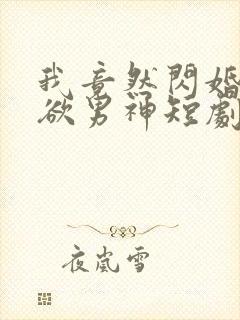 我竟然閃婚
欲男神短劇
夜嵐雪